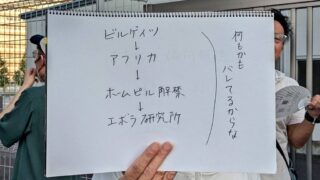 ビルゲイツ
↓
アフリカ
↓
ホームピル解禁
↓
エボラ研究所
何もかも
バレてるからな